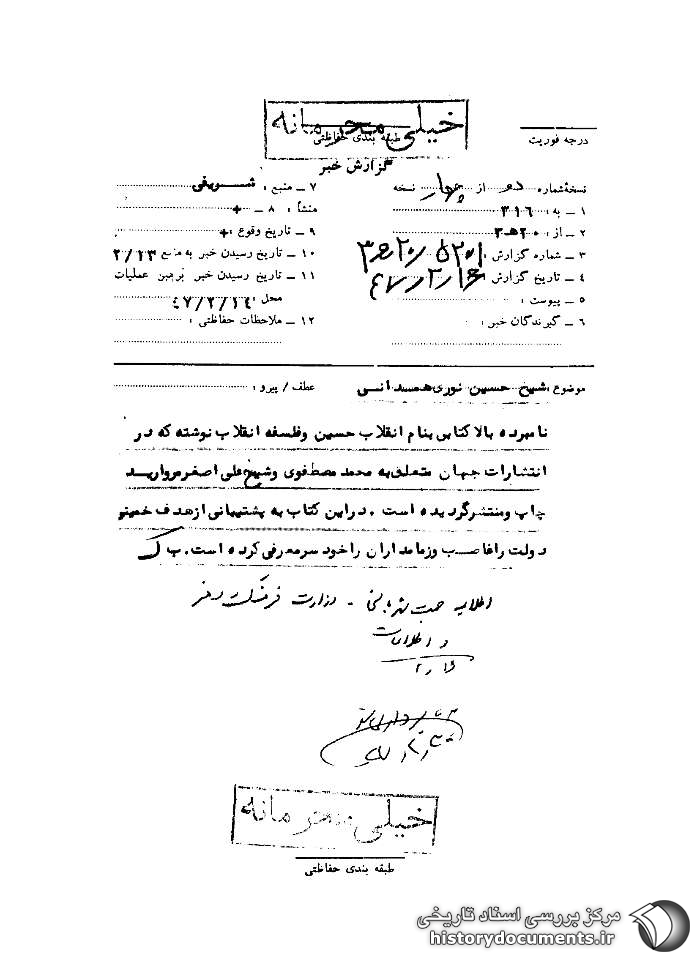 خیلی محرمانه
طبقه بندی حفاظتی
درجه فوریت
گزارش خبر
نسخهٔ شماره دو از چهار نسخه
۱ ـ به : ۳۱۶
۲ ـ از : ۲۰ ه ۳
۳ ـ شماره گزارش :
۴ ـ تاریخ گزارش :
۵ ـ پیوست :
۶ ـ گیرندگان خبر :
۷ ـ منبع :
۸ ـ منشأ : +
۹ ـ تاریخ وقوع : +
۱۰ ـ تاریخ رسیدن خبر به منبع ۲/۱۳
۱۱ ـ تاریخ رسیدن خبر برهبر عملیات
محل : ۴۷/۲/۱۴
۱۲ ـ ملاحظات حفاظتی :
موضوع : شیخ حسین نوری همدانی
عطف / پیرو :
نامبرده بالا کتابی بنام انقلاب حسین وفلسفه انقلاب نوشته که در
انتشارات جهان متعلق به محمد مصطفوی وشیخ علی اصغر مروارید
چاپ ومنتشر گردیده است . در این کتاب به پشتیبانی از هدف خمینی
دولت را غاصب وزمامداران را خود سر معرفی کرده است.
وزارت فرهنگ و هنر
و اطلاعات
خیلی محرمانه
طبقه بندی حفاظتی
مرکز بررسی اسناد تاریخی
historydocuments.ir